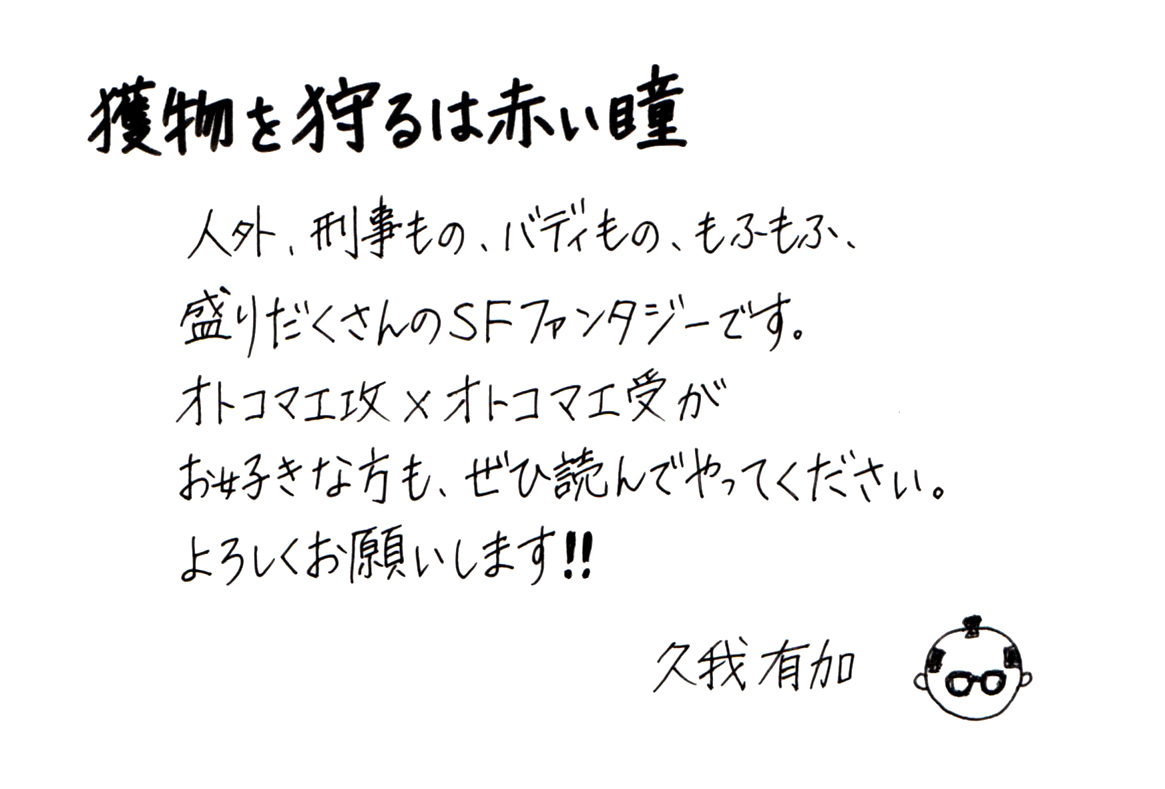 獲物を狩るは赤い瞳
人外、刑事もの、バディもの、もふもふ、
盛りだくさんのSFファンタジーです。
オトコマエ攻×オトコマエ受が
お好きな方も、ぜひ読んでやってください。
よろしくお願いします!!
久我有加